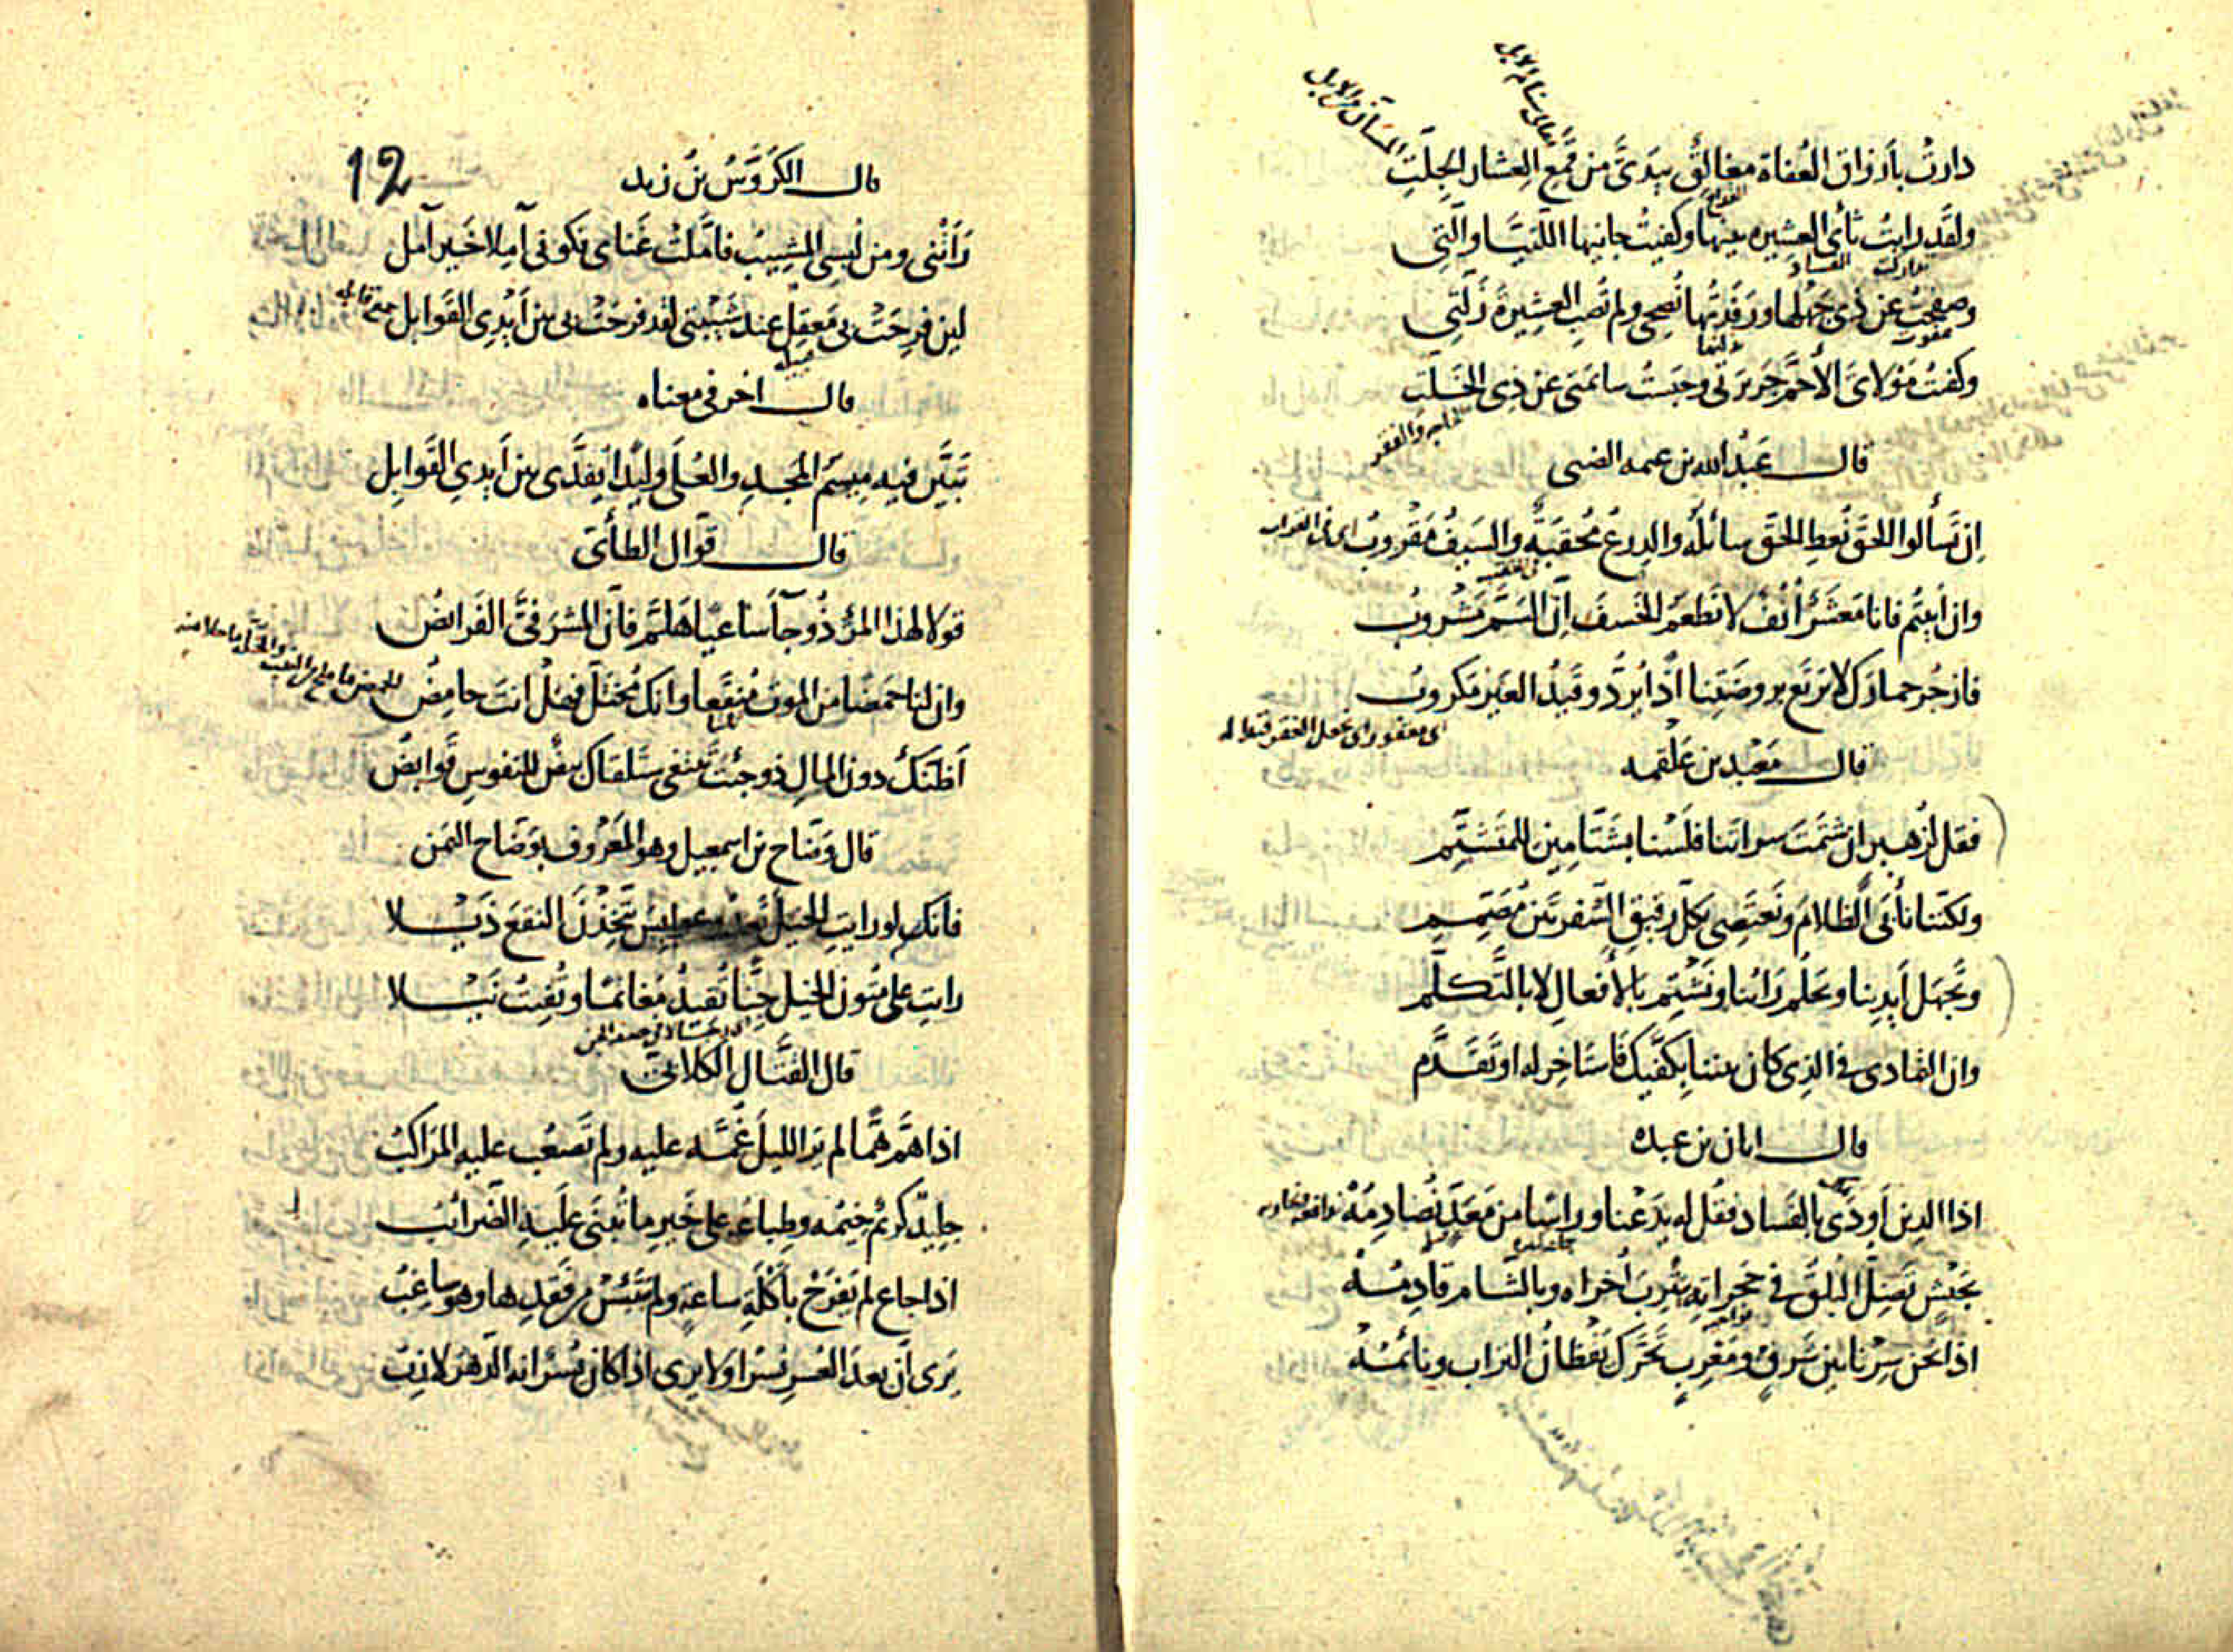 دارت بأرزاق العُفاة مغالقٌ بيدىّ من قمع العشار الجلّتِ
ولقد رابتُ ثأى العشيرة بينها وكفيت جانيها اللتيّا والّتى
وصفحت عن ذى جهلها ورفدتها نصحى ولم تصب العشيرة زلّتى
وكفيت مولاى الأحمّ جريرتى وحبست سائمتى عن ذى الخلّتِ
الحاجه والفقر
قال عبد الله بن عنمه الضبى
ان تسألوا الحقّ نعط الحقّ سائله والدرع محقبة والسيف مقروب
وان أبيتم فانا معشر أنف لا نطعم الخسف انّ السمّ مشروب
فازجر حمارك لا يرتع بروضتنا اذا يردّ وقيد العير مكروب
قال معبد بن علقمه
فقل لزهير ان شتمت سراتنا فلسنا بشتّامين للمتشتّم
ولكننا نأبى الظلام ونعتصى بكل رقيق الشفرتين مصمّم
وتجهل أيدينا ويحلم رأينا ونشتم بالأفعال لا بالتكلّم
وان التمادى فى الذى كان بيننا بكفّيك فاستاخر له او تقدّم
قال ابان بن عبده
اذا الدين أودى بالفساد فقل له يدعنا وراسًا من معدّ نصادمه
بجيش تضلّ البلق فى حجراته بيثرب أخراه وبالشام قادمه
اذا نحن سرنا بين شرق ومغرب تحرّك يقظان التراب ونائمه
12
قال الكروّس بن زيد
رأتنى ومن لبسى المشيب فامّلت غناى فكونى آملا خير آمل
لئن فرحت بى معقل عند شيبتى لقد فرحت بى بين أيدى القوابل
قال اخر فى معناه
تبيّن فيه ميسم المجد والعلى وليدا يفدّى بين أيدي القوابل
قال قوّال الطأى
قولا لهذا المرء ذو جآ ساعيا هلمّ فانّ المشرفىّ الفرائض
وان لنا حمضا من الموت منقعا وانك مختلّ فهل انت حامض
أظنك دون المال ذو جئت تبتغى ستلقاك بيض للنفوس قوابض
قال وضاح بن اسمعيل وهو المعروف بوضاح اليمن
فانك لو رايت الخيل تعدو عوابس يتّخذن النقع ذيلا
رايت على متون الخيل جنّا تفيد مغانما وتفيت نيلا
قال القتال الكلابى
اذا همّ همّا لم ير الليل غمّه عليه ولم تصعب عليه المراكب
جليد كريم خيمه وطباعه على خير ما تبنى عليه الضرائب
اذا جاع لم يفرح بأكلة ساعة ولم يبتئس من فقدها وهو ساغب
يرى انّ بعد العسر يسرا ولا يرى اذا كان يسر انه الدهر لازب